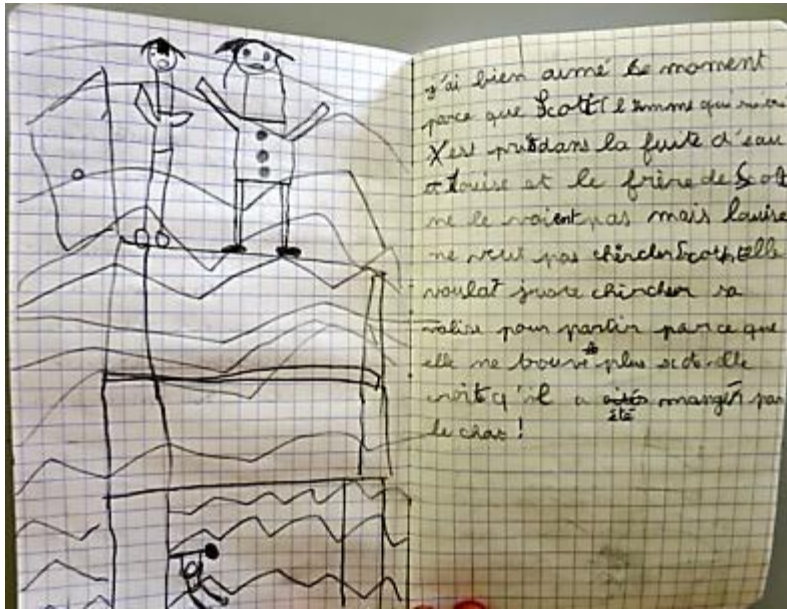 j'ai bien aimé ce moment
parce que Scott l'omme qui
s'est pris dans la fuite d'eau
et Louise et le frère de Scott
ne le voient pas mais louise
ne veut pas chercher Scott, elle
voulat juste chircher sa
valise pour partir parce que
elle ne trouve plus scott elle
croit q'il a été mangér par
le chat!